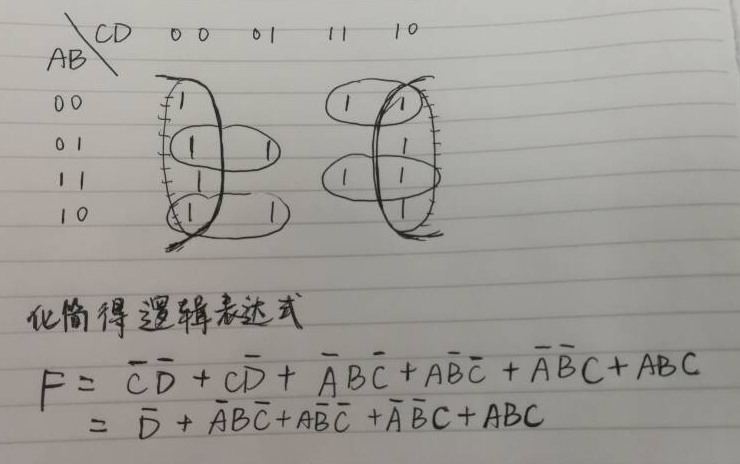 CD 00 01 11 10
AB
00 1 1 1
01 1 1 1
11 1 1 1
10 1 1 1
化简得逻辑表达式
F = C̄D̄ + CD̄ + ĀBC̄ + AB̄C̄ + ĀB̄C + ABC
= D̄ + ĀBC̄ + AB̄C̄ + ĀB̄C + ABC